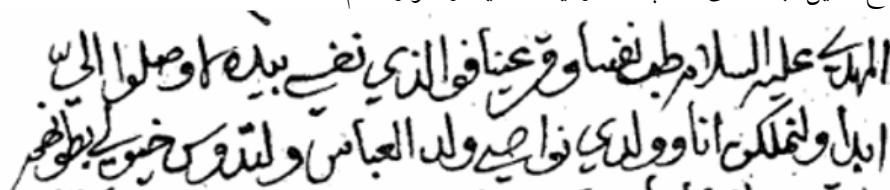 المهدي عليه السلام طب نفسا وقر عينا فوالذي نفسي بيده لا وصلوا الي
ابدا ولنملكن انا وولدي نواصي ولد العباس ولتدوس خيولي بطونهم